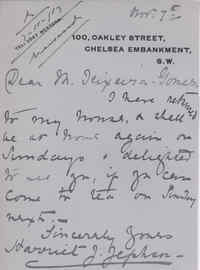 Nov. 7th
100, OAKLEY STREET,
CHELSEA EMBANKMENT,
S.W.
Dear M. Teixeira-Gomes
I have returned
to my house, & shall
be at home again on
Sundays & delighted
to see you, if you can
come to tea on Sunday
next.—
Sincerely yours
Harriet J. Jephson.—